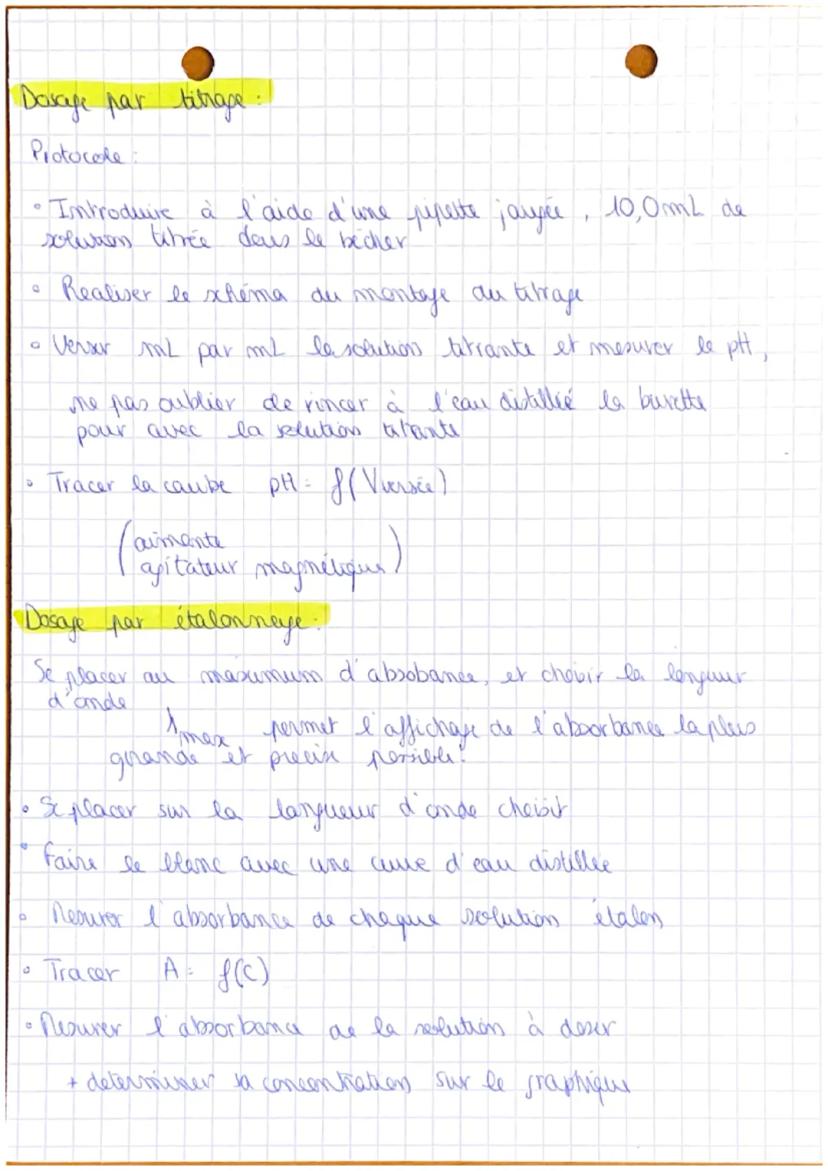 Dosage par titrage :
Protocole :
• Introduire à l'aide d'une pipette jaugée, 10,0 mL de
solution titrée dans le bécher
• Realiser le schéma du montage du titrage
• Verser mL par mL la solution titrante et mesurer le pH,
ne pas oublier de rincer à l'eau distillée la burette
pour avec la solution titrante
• Tracer la courbe pH = f(Vversée)
(aimante
agitateur magnétique)
Dosage par étalonnage :
Se placer au maximum d'absobance, et choisir la longueur
d'onde
λmax permet l'affichage de l'absorbance la plus
grande et precise possible !
• Se placer sur la longueur d'onde choisit
• Faire le blanc avec une cuve d'eau distillée
• Mesurer l'absorbance de chaque solution étalon
• Tracer A = f(C)
• Mesurer l'absorbance de la solution à doser
+ determiner sa concentration sur le graphique